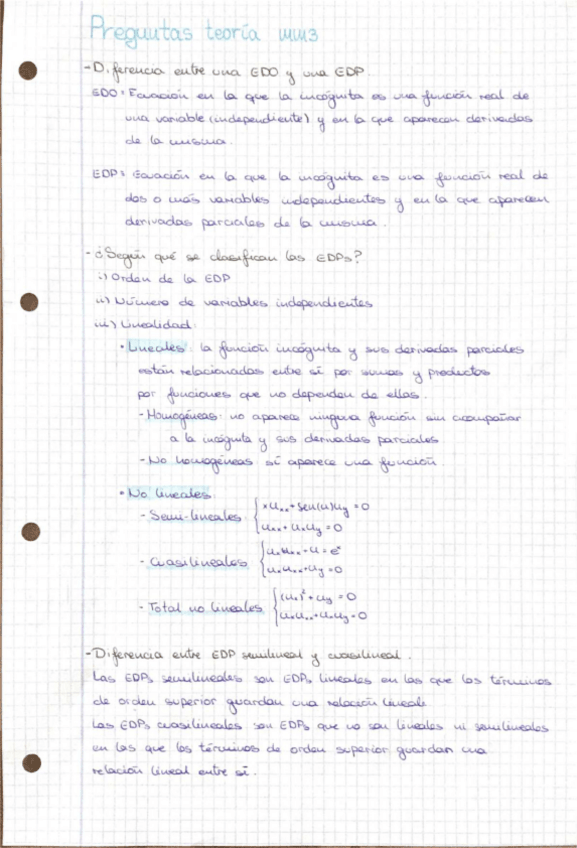 Preguntas teoría MM3
- Diferencia entre una EDO y una EDP.
EDO: Ecuación en la que la incógnita es una función real de
una variable (independiente) y en la que aparecen derivadas
de la misma.
EDP: Ecuación en la que la incógnita es una función real de
dos o más variables independientes y en la que aparecen
derivadas parciales de la misma.
- ¿Según qué se clasifican las EDPs?
i) Orden de la EDP
ii) Número de variables independientes
iii) Linealidad
• Lineales: la función incógnita y sus derivadas parciales
están relacionadas entre sí por sumas y productos
por funciones que no dependen de ellas.
- Homogéneas: no aparece ninguna función sin acompañar
a la incógnita y sus derivadas parciales
- No homogéneas: sí aparece una función.
• No lineales
- Semi-lineales { xuₓₓ + sen(u)u_y = 0
uₓₓ + uₓu_y = 0
- Cuasilineales { uₓuₓₓ - u = eˣ
uₓuₓₓ + u_y = 0
- Total no lineales { (uₓ)² + u_y = 0
uₓuₓₓ + uₓu_y = 0
- Diferencia entre EDP semilineal y cuasilineal.
Las EDPs semilineales son EDPs lineales en las que los términos
de orden superior guardan una relación lineal.
Las EDPs cuasilineales son EDPs que no son lineales ni semilineales
en las que los términos de orden superior guardan una
relación lineal entre sí.